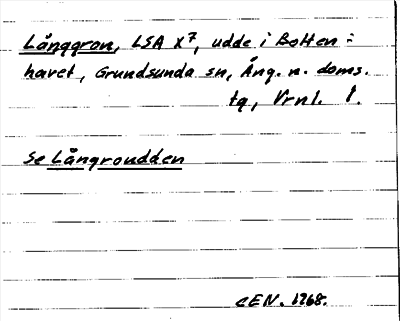 Långgron, LSA X7, udde i Botten-
havet, Grundsunda sn, Ång. n. doms.
tg, Vrnl. 1.
Se Långroudden
CEN. 1968.